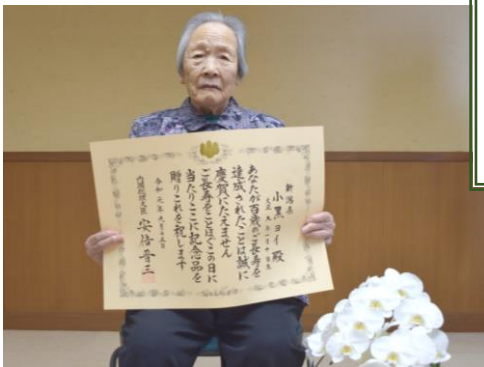 新潟県
小黒ヨイ殿
あなたが百歳のご長寿を
達成されたことは誠に
慶賀にたえません
ご長寿をことほぐこの日に
当たりここに記念品を
贈りこれを祝します
令和元年九月十五日
内閣総理大臣 安倍晋三